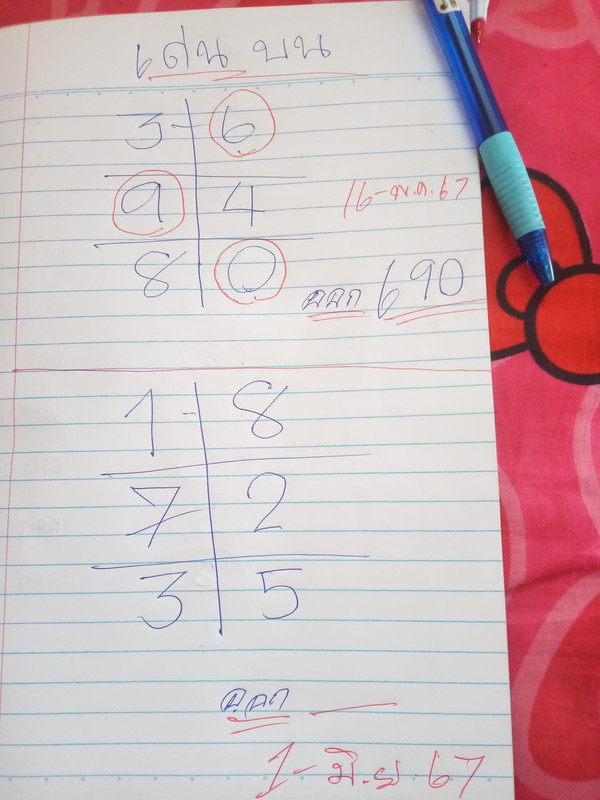 เด่น บน
3 - 6
9 4
16-พ.ค.67
8 0
ออก 690
1 - 8
7 2
3 5
ออก
1-มิ.ย.67